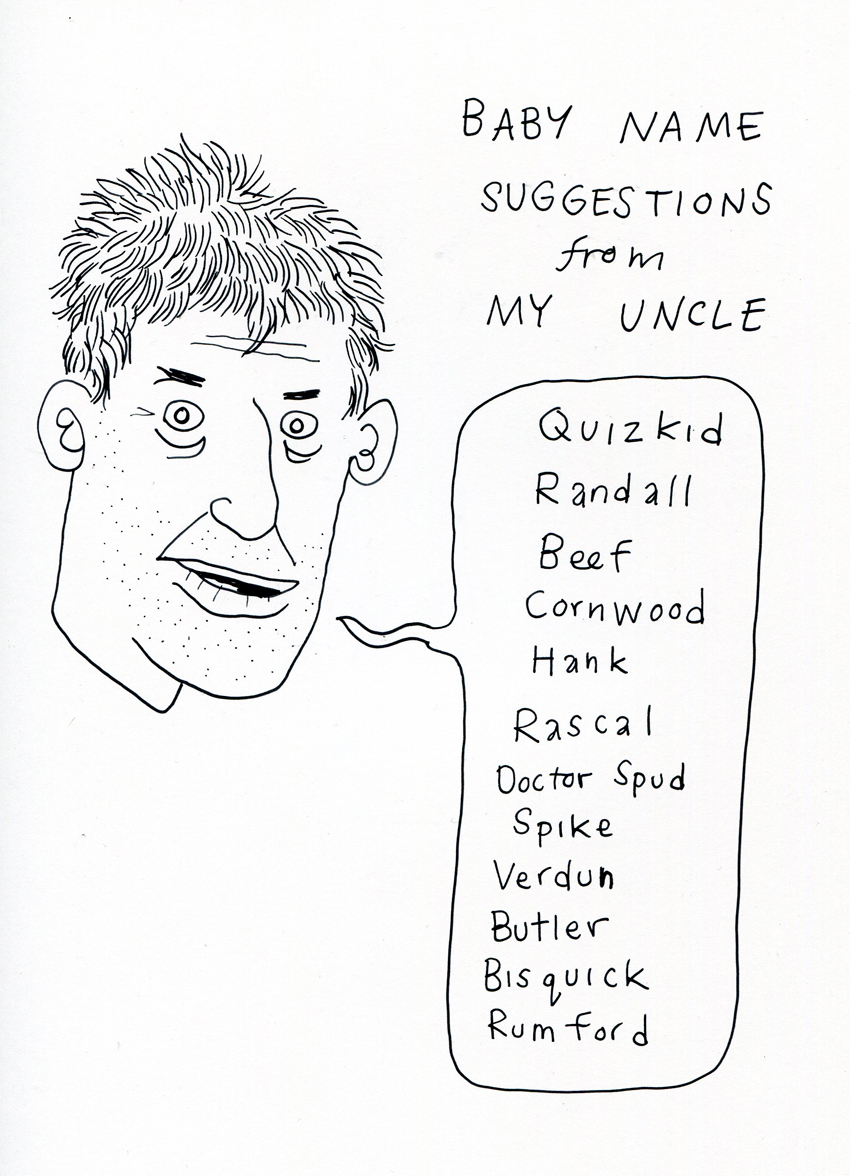 BABY NAME
SUGGESTIONS
from
MY UNCLE
Quizkid
Randall
Beef
Cornwood
Hank
Rascal
Doctor Spud
Spike
Verdun
Butler
Bisquick
Rumford